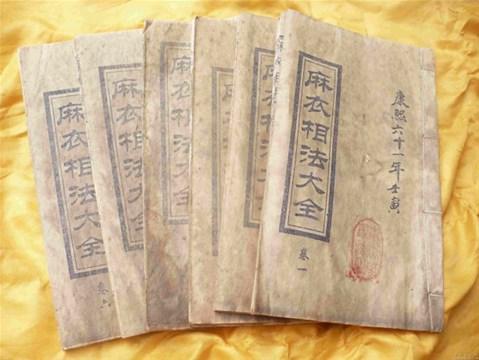 麻衣相法大全
卷六
麻衣相法大全
麻衣相法大全
麻衣相法大全
麻衣相法大全
卷一
康熙六十一年壬寅